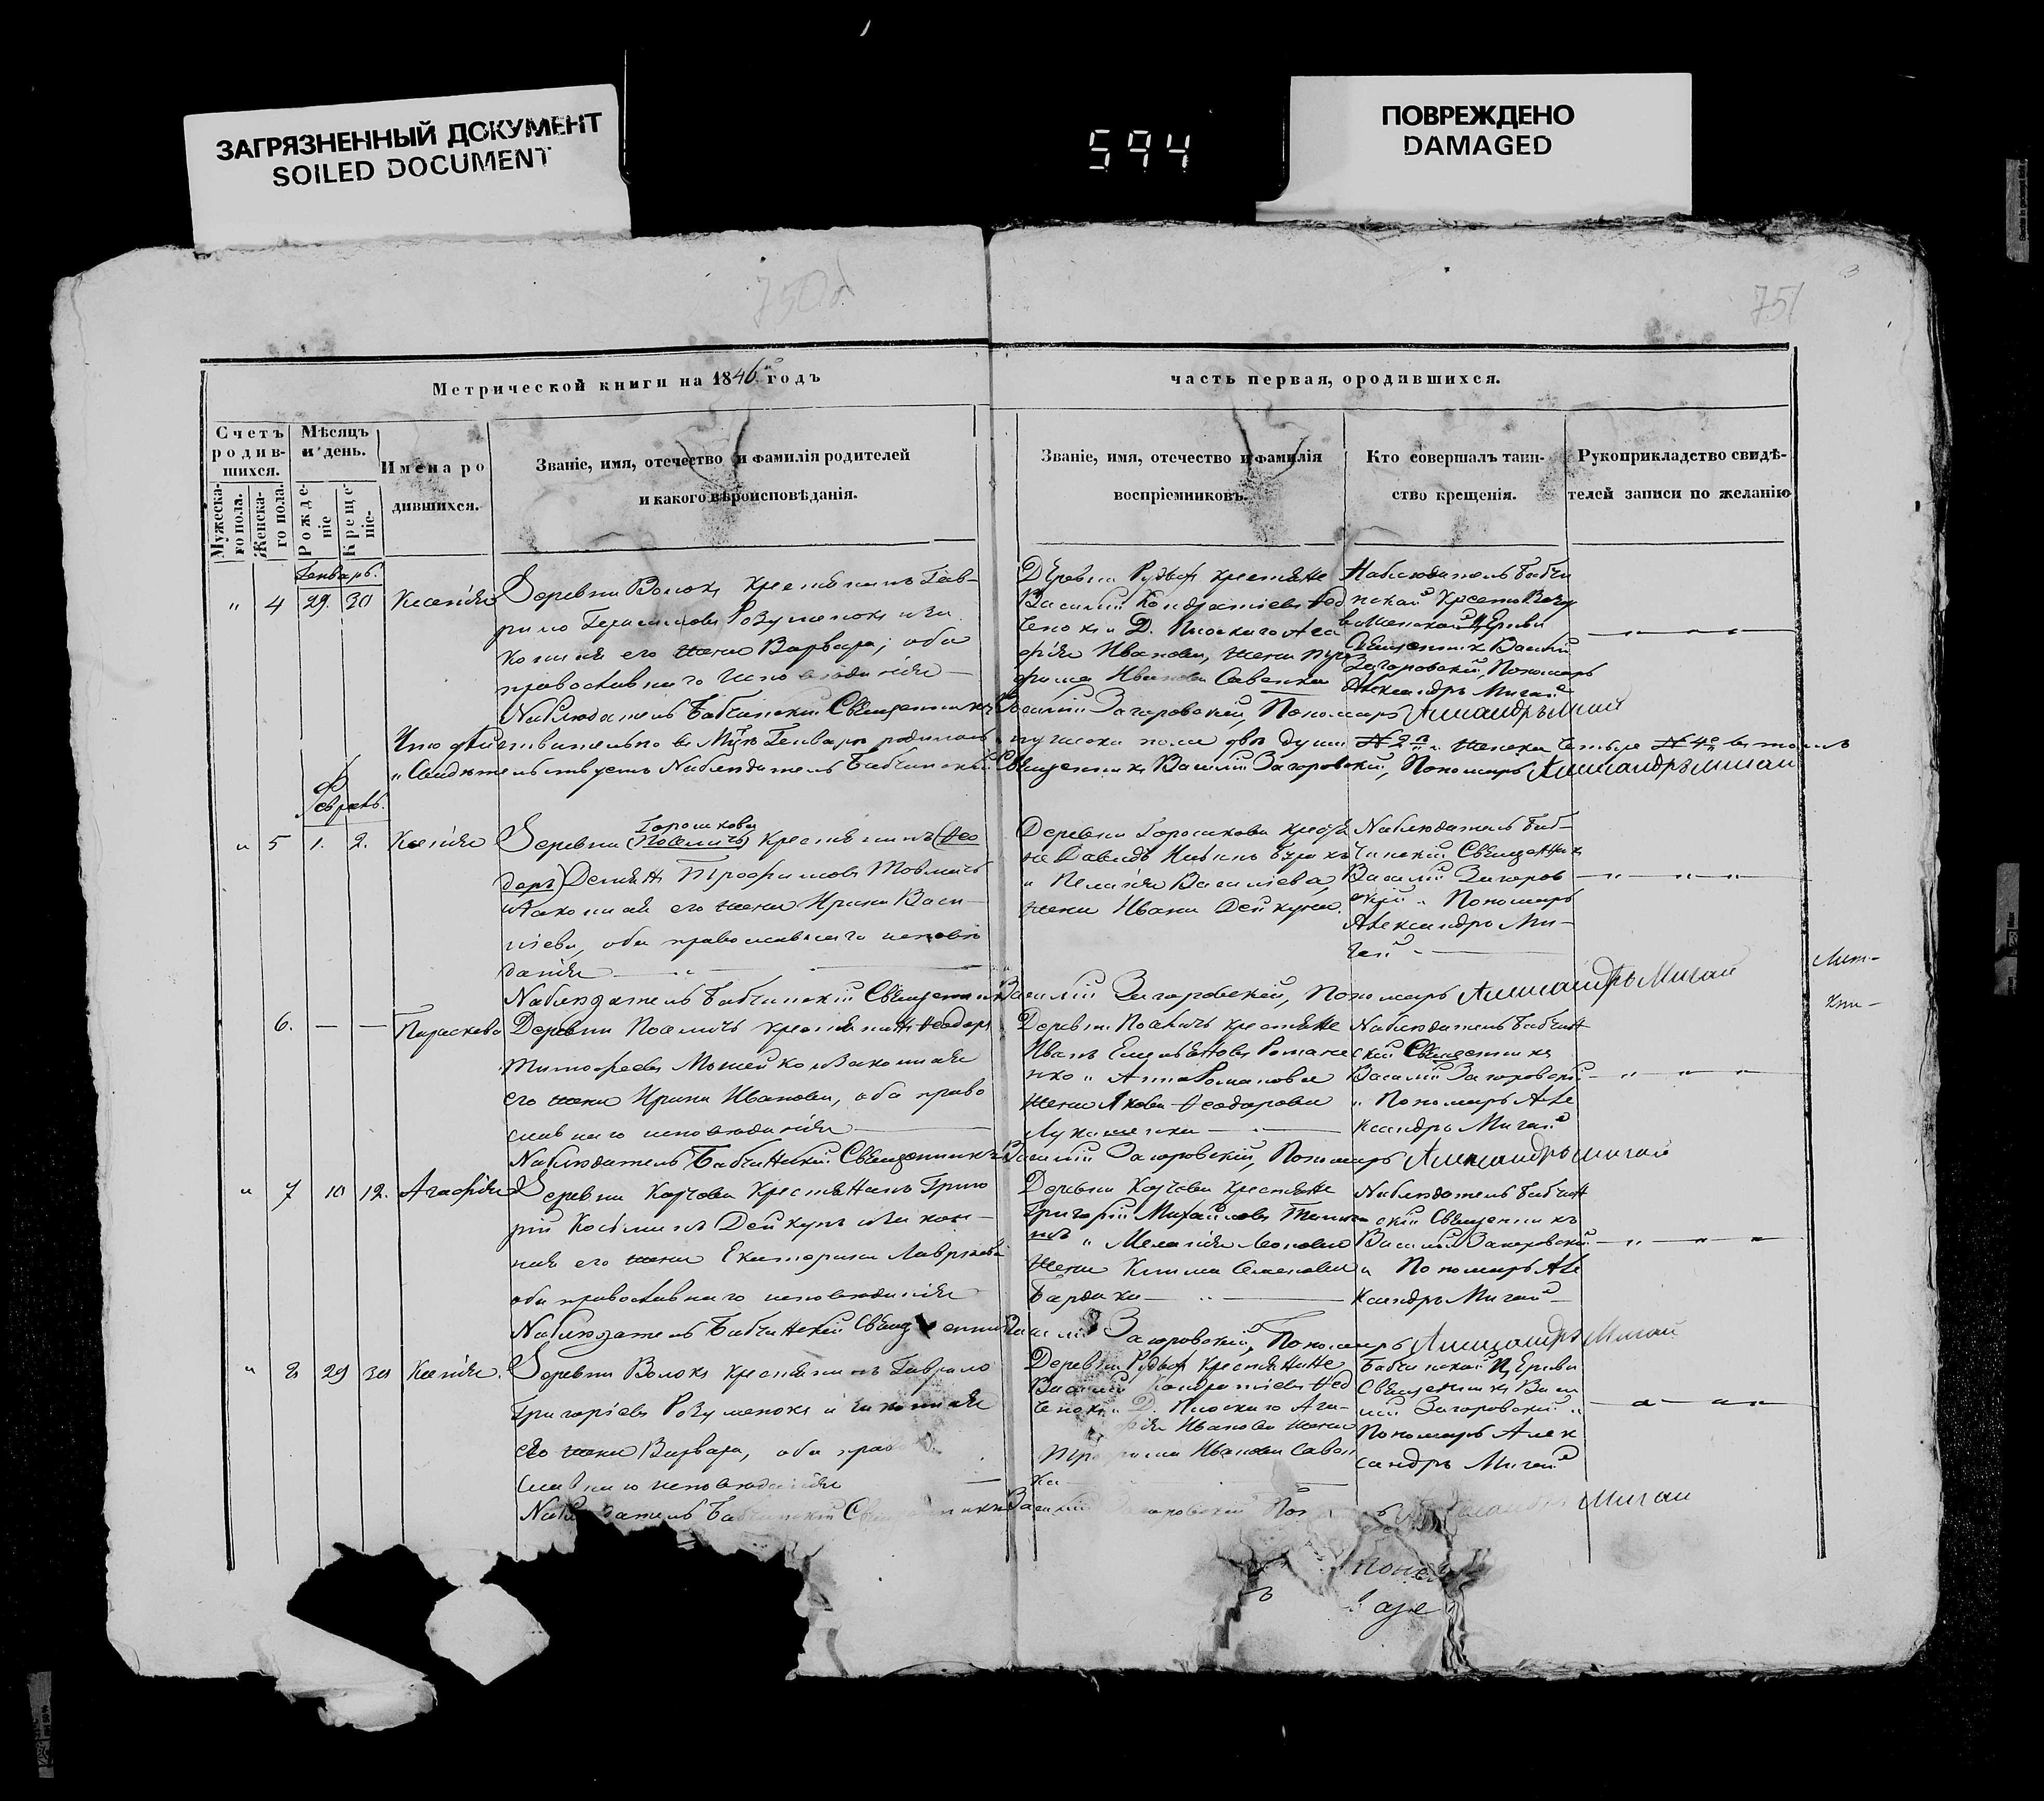 ЗАГРЯЗНЕННЫЙ ДОКУМЕНТ
SOILED DOCUMENT
594
ПОВРЕЖДЕНО
DAMAGED
750об
751
3
Метрической книги на 1846й годъ
часть первая, ородившихся.
Счетъ родив-шихся.
Мужеска-го пола.
Женска-го пола.
Мѣсяцъ и день.
Рожде-ніе
Креще-ніе.
Имена ро
дившихся.
Званіе, имя, отечество и фамилія родителей
и какого вѣроисповѣданія.
Званіе, имя, отечество и фамилія
воспріемниковъ.
Кто совершалъ таин-
ство крещенія.
Рукоприкладство свидѣ-
телей записи по желанію
Генварь.
" 4 29. 30 Ксенія
Деревни Волокъ крестьянинъ Гав-
рило Герасимовъ Розуменокъ иза
конная его жена Варвара, оба
православнаго исповѣданія
Деревни Рудня крестьяне
Василий Кондратіевъ Ѳед
ченокъ и Д. Плоскаго Ага
фія Иванова, жена Тро
фима Иванова Савенка
Наблюдатель Бабчи
нской Кресто Воздв
иженской Церкви
Священникъ Василій
Загоровскій, Пономарь
Александръ Мигай
Наблюдатель Бабчинскій Священникъ Василій Загоровскій, Пономарь Александръ Мигай
Что дѣйствительно въ Мцѣ Генварѣ родилось мужеска пола двѣ души № 2й и женска четыре № 4е въ томъ
и Свидѣтельствуетъ Наблюдатель Бабчинскій Священникъ Василій Загоровскій, Пономарь Александръ Мигай
Февраль.
" 5 1. 2. Ксенія
Горошкова
Деревни (Поселичъ) крестьянинъ (Ѳео
доръ) Демьянъ Трофимовъ
изаконная его жена Ирина Васи-
ліева, оба православнаго исповѣ
данія
Деревни Горошкова крестья
не Давидъ
и Пелагія Василіева,
жена Ивана Дейкуна.
Наблюдатель Баб-
чинскій Священникъ
Василій Загоров
скій и Пономарь
Александръ Ми-
гай
Наблюдатель Бабчинскій Священникъ Василій Загоровскій, Пономарь Александръ Мигай
6. — — Параскева
Деревни Поселичъ крестьянинъ Ѳеодоръ
Тимофеевъ Мошейко изаконная
его жена Ирина Иванова, оба право
славнаго исповѣданія
Деревни Поселичъ крестьяне
Иванъ Емельяновъ Романе
нко и Анна Романова
жена Якова Ѳеодорова
Лукашенка
Наблюдатель Бабчин
скій Священникъ
Василій Загоровскій
и Пономарь Але
ксандръ Мигай
Наблюдатель Бабчинскій Священникъ Василій Загоровскій, Пономарь Александръ Мигай
" 7 10 12. Агафія
Деревни Козчова крестьянинъ Григо
рій Косьминъ Дейкунъ изакон-
ная его жена Екатерина
оба православнаго исповѣданія
Деревни Козчова крестьяне
Григорій Михайловъ
и Меланія
жена Климa Семенова
Бардака
Наблюдатель Бабчин
скій Священникъ
Василій Загоровскій
и Пономарь Але
ксандръ Мигай
Наблюдатель Бабчинскій Священникъ Василій Загоровскій, Пономарь Александръ Мигай
" 8 29 30 Ксенія.
Деревни Волокъ крестьянинъ Гаврило
Григоріевъ Розуменокъ и законная
его жена Варвара, оба право
славнаго исповѣданія
Деревни Рудня крестьяне
Василий Кондратіевъ Ѳед
ченокъ и Д. Плоскаго Ага-
фія Иванова жена
Трофима Иванова Савен
ка
Бабчинской Церкви
Священникъ Васи
лій Загоровскій и
Пономарь Алек
сандръ Мигай
Наблюдатель Бабчинскій Священникъ Василій Загоровскій Мигай